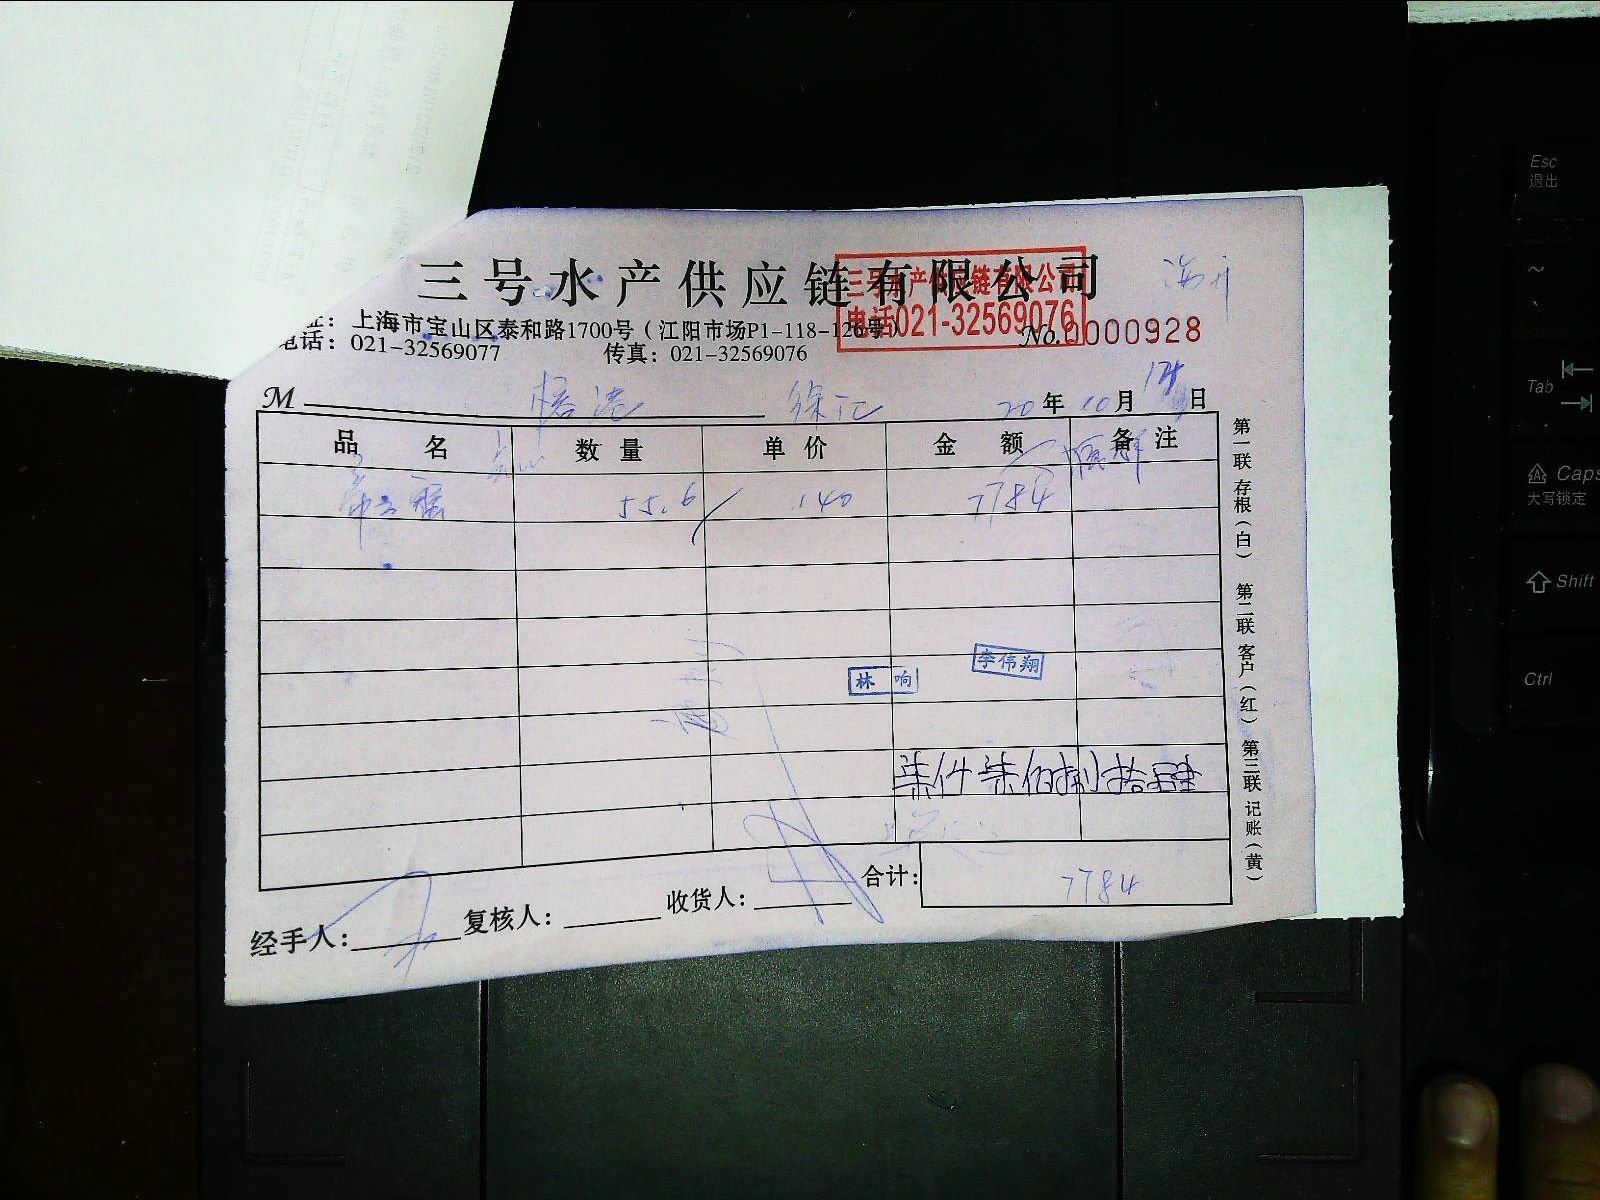 三号水产供应链有限公司
三号水产供应链有限公司
电话021-32569076
上海市宝山区泰和路1700号（江阳市场P1-118-126号）
电话：021-32569077 传真：021-32569076
No.0000928
M 徐汇 20年10月 日
品名 数量 单价 金额 备注
55.6 140 7784
林响
李伟翔
柒仟柒佰捌拾肆
合计： 7784
经手人： 复核人： 收货人：
第一联 存根（白） 第二联 客户（红） 第三联 记账（黄）
Esc
退出
~
Tab
Caps
大写锁定
Shift
Ctrl